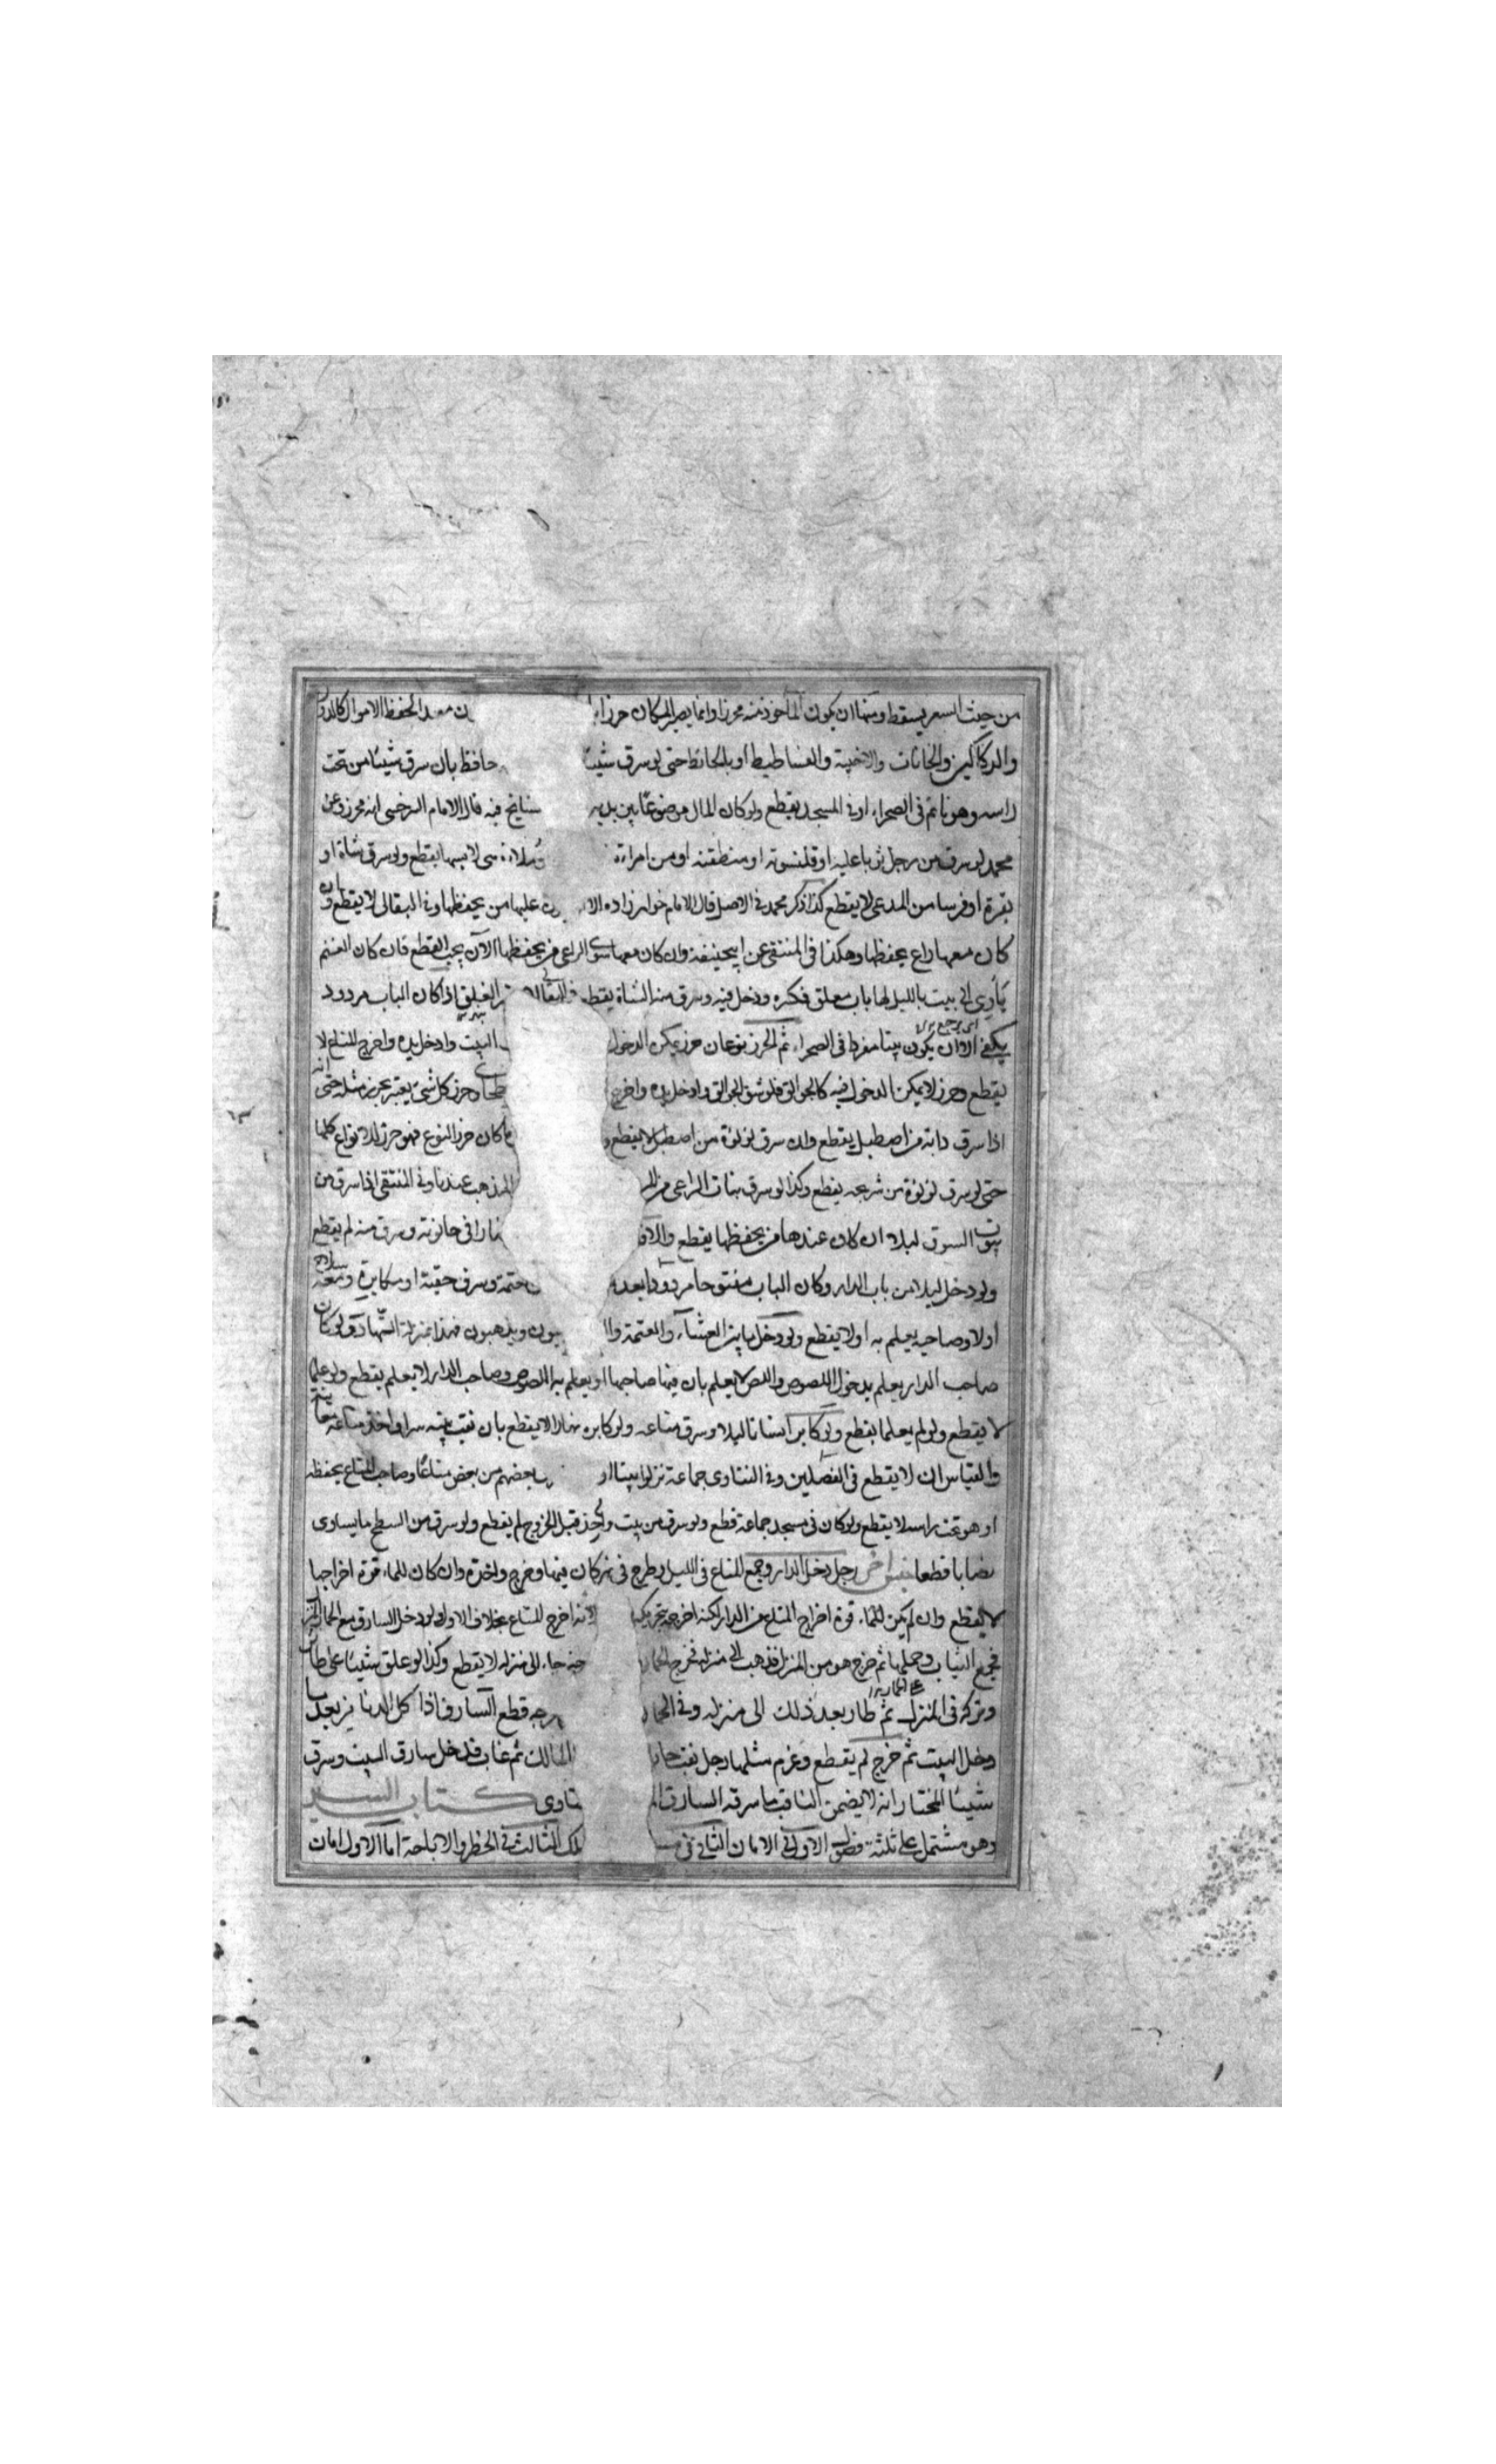 من حيث السعر يسقط ومنها ان يكون المأخوذ منه محرزا وانما يصير المكان حرزا معدا لحفظ الاموال كالدور
والدكاكين والخانات والاخبية والفساطيط او بالحافظ حتى لو سرق شيئا حافظ بان سرق شيئا من تحت
راسه وهو نائم فى الصحراء او فى المسجد يقطع ولو كان المال موضوعا بين يديه فيه قال الامام السرخسى انه محرز وعن
محمد لو سرق من رجل ثوبا عليه او قلنسوته او منطقته او من امراءة لابسها يقطع ولو سرق شاة او
بقرة او فرسا من المدعى لا يقطع كذا ذكر محمد فى الاصل قال الامام خواهر زاده الا عليها من يحفظها وفى البقالى لا يقطع وان
كان معها راع يحفظها وهكذا فى المنتقى عن ابيحنيفة وان كان معها سوى الراعى من يحفظها الآن يجب القطع فان كان الغنم
يأوى الى بيت بالليل لها باب مغلق فكسره ودخل فيه وسرق منه الشاة يقطع الغلق اذا كان الباب مردود
يكفى الا ان يكون بيتا مفردا فى الصحراء ثم الحرز نوعان حرز يمكن الدخول البيت وادخل يده واخرج المتاع لا
يقطع وحرز لا يمكن الدخول فيه كالجوالق فلو شق الجوالق وادخل يده واخرج وحرز كل شئ يعتبر بحرز مثله حتى انه
اذا سرق دابة من اصطبل يقطع وان سرق لؤلؤة من اصطبل لا يقطع و ما كان حرز النوع فهو حرز للانواع كلها
حتى لو سرق لؤلؤة من شريجه يقطع وكذا لو سرق بنات الراعى من المذهب عندنا وفى المنتقى اذا سرق من
بيوت السوق ليلا ان كان عندها من يحفظها يقطع والا فى حانوته وسرق منه لم يقطع
ولو دخل ليلا من باب الدار وكان الباب مفتوحا مردودا بعد وسرق خفية او مكابرة ومعه سلاح
اولا وصاحبه يعلم به اولا يقطع ولو دخل ما بين العشاء والعتمة وال ويذهبون فهذا بمنزلة النهار ولو كان
صاحب الدار يعلم بدخول اللصوص واللص لا يعلم بان فيها صاحبها او يعلم به اللصوص وصاحب الدار لا يعلم يقطع ولو علما
لا يقطع ولو لم يعلما يقطع ولو كابر انسانا ليلا وسرق متاعه ولو كابره نهارا لا يقطع بان نقب بيته سرا واخذ متاعه
والقياس ان لا يقطع فى الفصلين وفى الفتاوى جماعة نزلوا بيتا او بعضهم من بعض متاعا وصاحب المتاع يحفظه
او هو تحت راسه لا يقطع ولو كان فى مسجد جماعة قطع ولو سرق من بيت واخذ قبل الخروج لم يقطع ولو سرق من السطح ما يساوى
نصابا قطع رجل دخل الدار وجمع المتاع فى الليل وطرح فى نهر كان فيها وخرج واخذه وان كان للماء قوة اخراجها
لا يقطع وان لم يكن للماء قوة اخراج المتاع من الدار لكنه اخرجه بتحريكه لانه اخرج المتاع بخلاف الاول ولو دخل السارق مع الحمار
فجمع الثياب وحملها ثم خرج هو من المنزل فذهب الى منزله فخرج الحمار جاء الى منزله لا يقطع وكذا لو علق شيئا على طائر
وتركه فى المنزل ثم طار بعد ذلك الى منزله وفى قطع السارق فاذا
دخل البيت ثم خرج لم يقطع وغرم مثلها رجل نقب المالك ثم غاب فدخل سارق البيت وسرق
شيئا المختار انه لا يضمن الناقب ما سرقه السارق كتاب السير
وهو مشتمل على ثلثة فصول الاول فى الامان الثانى فى الثالث فى الحظر والاباحة اما الاول امان